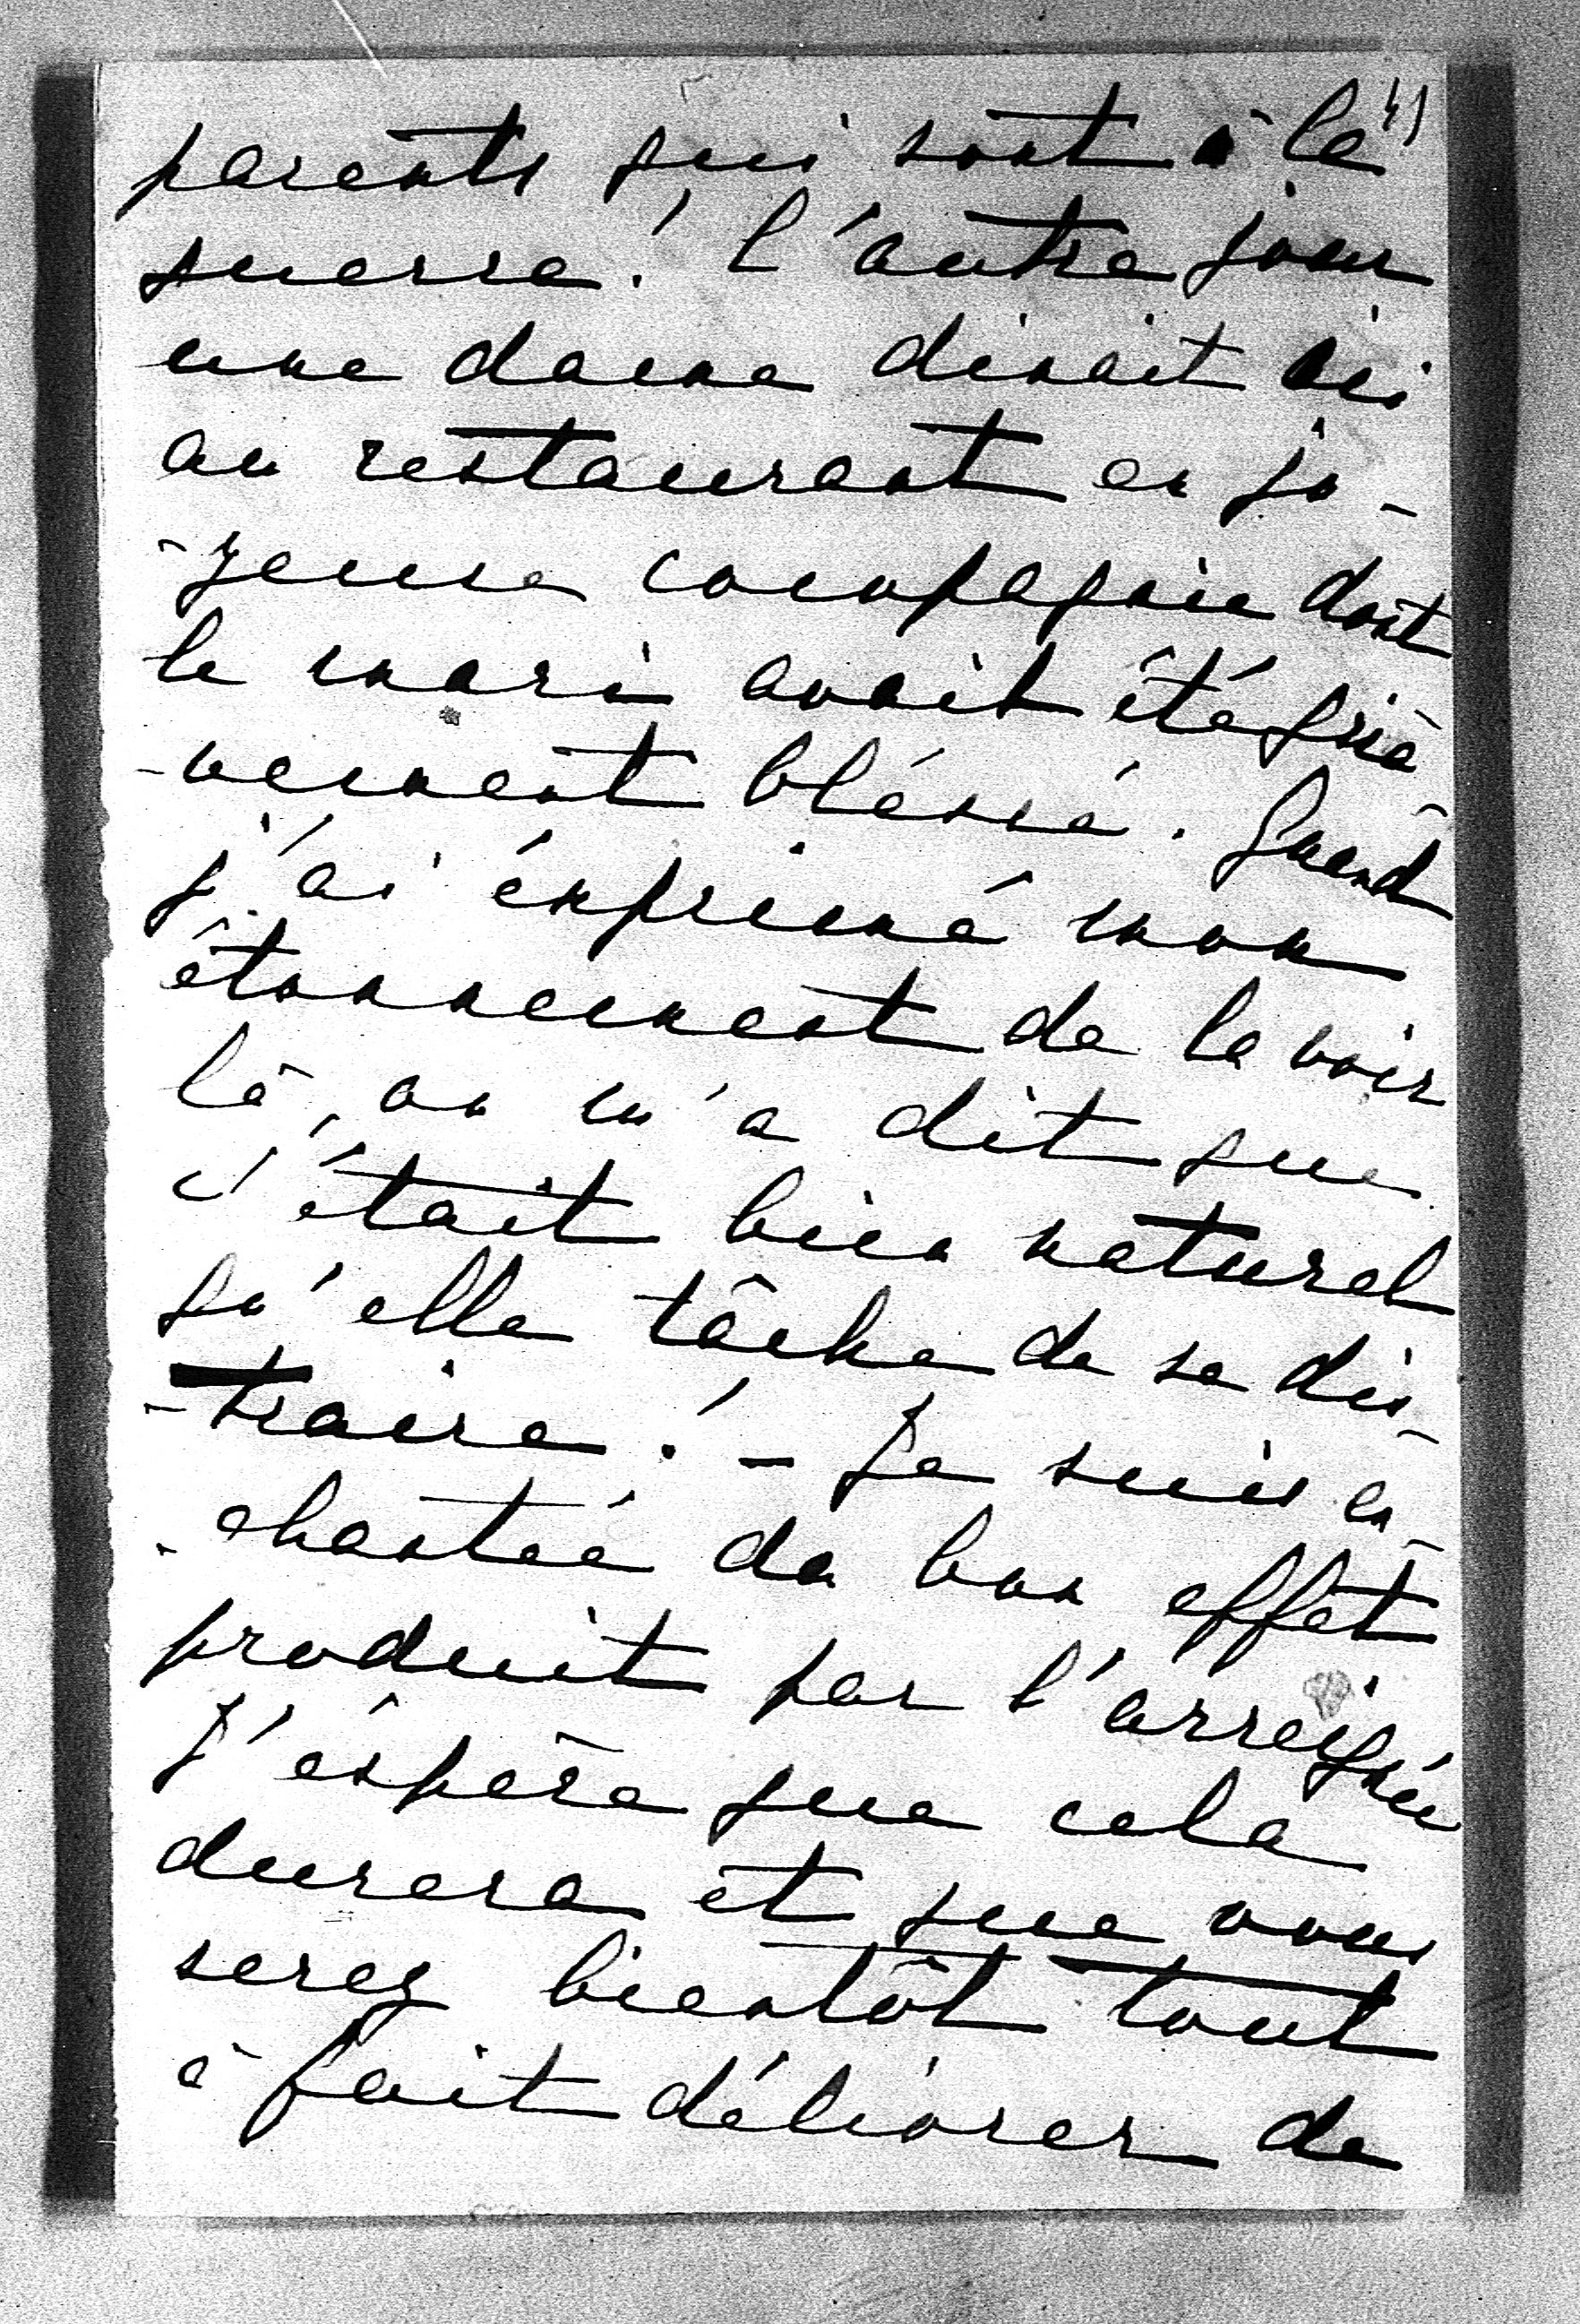 4)
parents qui sont à la
guerre! L'autre jour
une dame dinait ici
au restaurant en jo-
-yeuse compagnie dont
le mari avait été griè-
-vement bléssé. Quand
j'ai éxprimé mon
étonnement de la voir
là, on m'a dit que
c'était bien naturel
qu'elle tâche de se dis-
-traire! - Je suis en-
-chantée du bon effet
produit par l'arraignée
J'espère que cela
durera et que vous
serez bientôt tout
à fait délivrer de